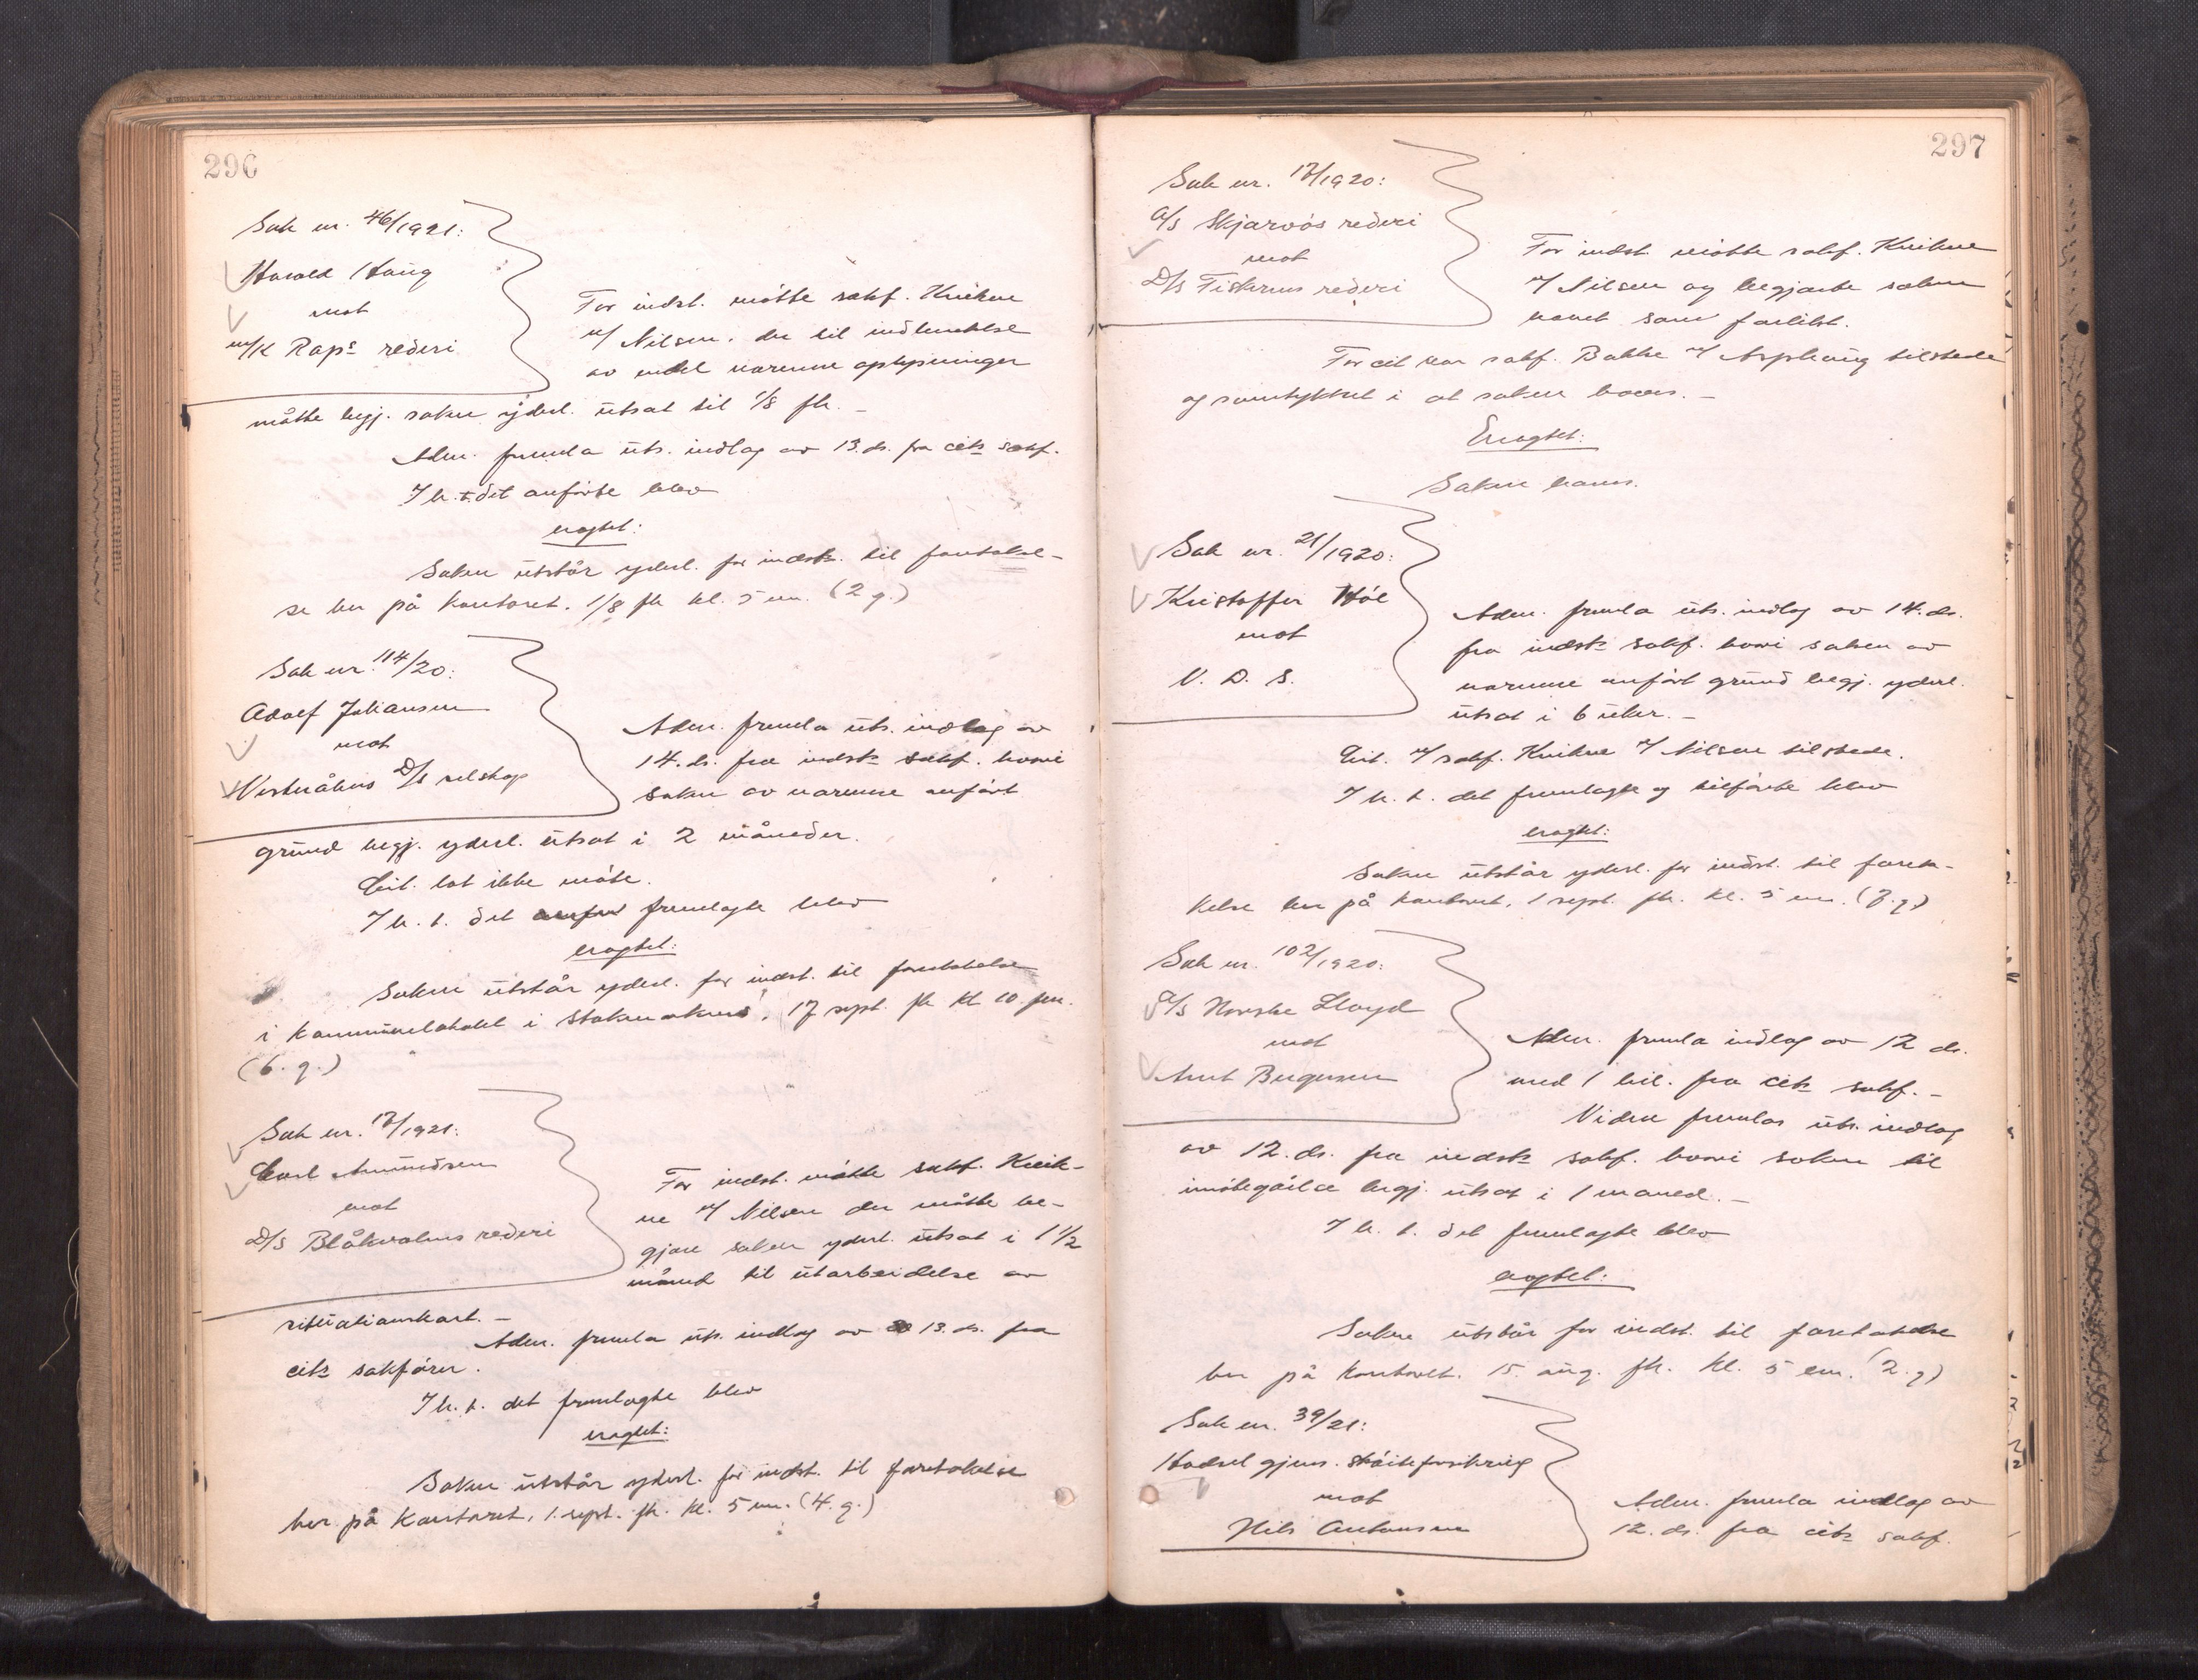 296
Sak nr. 46/1921:
Harald Haug
mot
m/k Raps rederi
For indst. møtte sakf. Knikne
v/ Nilsen, der til indhentelse
av endel nærmere oplysninger
måtte begj. saken yderl. utsat til 1/8 fk. -
Adm. fremla uts. indlag av 13. ds. fra citz sakf.
I h. t. det anførte blev
eragtet:
Saken utstår yderl. for indst. til foretakel-
se her på kontoret, 1/8 fk kl. 5 em. (2 g.)
Sak nr. 114/20:
Adolf Johansen
mot
Vesterålens D/s selskap
Adm. fremla uts. indlag av
14. ds. fra indstz sakf. hvori
saken av nærmere anført
grund begj. yderl. utsat i 2 måneder.
Cit. lot ikke møte.
I h. t. det fremlagte blev
eragtet:
Saken utstår yderl. for indst. til foretakelse
i kommunelokalet i Stokmarknes, 17 sept. fk kl 10 fm.
(6. g.)
Sak nr. 17/1921:
Carl Amundsen
mot
D/s Blåkvalens rederi
For indst. møtte sakf. Knik-
ne v/ Nilsen der måtte be-
gjære saken yderl. utsat i 1 1/2
måned til utarbeidelse av
situationskart. -
Adm. fremla uts. indlag av 13. ds. fra
citz sakfører.
I h. t. det fremlagte blev
eragtet:
Saken utstår yderl. for indst. til foretakelse
her på kontoret, 1. sept. fk. kl. 5 em. (4. g.)
297
Sak nr. 17/1920:
A/s Skjarvøs rederi
mot
D/s Fiskerens rederi
For indst. møtte sakf. Knikne
v/ Nilsen og begjærte saken
hævet som forlikt.
For cit var sakf. Bakke v/ Asphaug tilstede
og samtykket i at saken hæves. -
Eragtet:
Saken hæves.
Sak nr. 21/1920:
Kristoffer Hol
mot
V. D. S.
Adm. fremla uts. indlag av 14. ds.
fra indstz sakf. hvori saken av
nærmere anført grund begj. yderl.
utsat i 6 uker. -
Cit. v/ sakf. Knikne v/ Nilsen tilstede.
I h. t. det fremlagte og tilførte blev
eragtet:
Saken utstår yderl. for indst. til foreta-
kelse her på kontoret, 1 sept. fk. kl. 5 em. (7. g.)
Sak nr. 102/1920:
A/s Norske Lloyd
mot
Arnt Bergersen
Adm. fremla indlag av 12 ds.
med 1 bil. fra citz sakf. -
Videre fremlas uts. indlag
av 12. ds. fra indstz sakf. hvori saken til
imøtegåelse begj. utsat i 1 maaned. -
I h. t. det fremlagte blev
eragtet:
Saken utstår for indst. til foretakelse
her på kontoret. 15. aug. fk. kl. 5 em. (2. g)
Sak nr. 39/21:
Hadsel gjens. skøiteforsikring
mot
Nils Antonsen
Adm. fremla indlag av
12. ds. fra citz sakf.